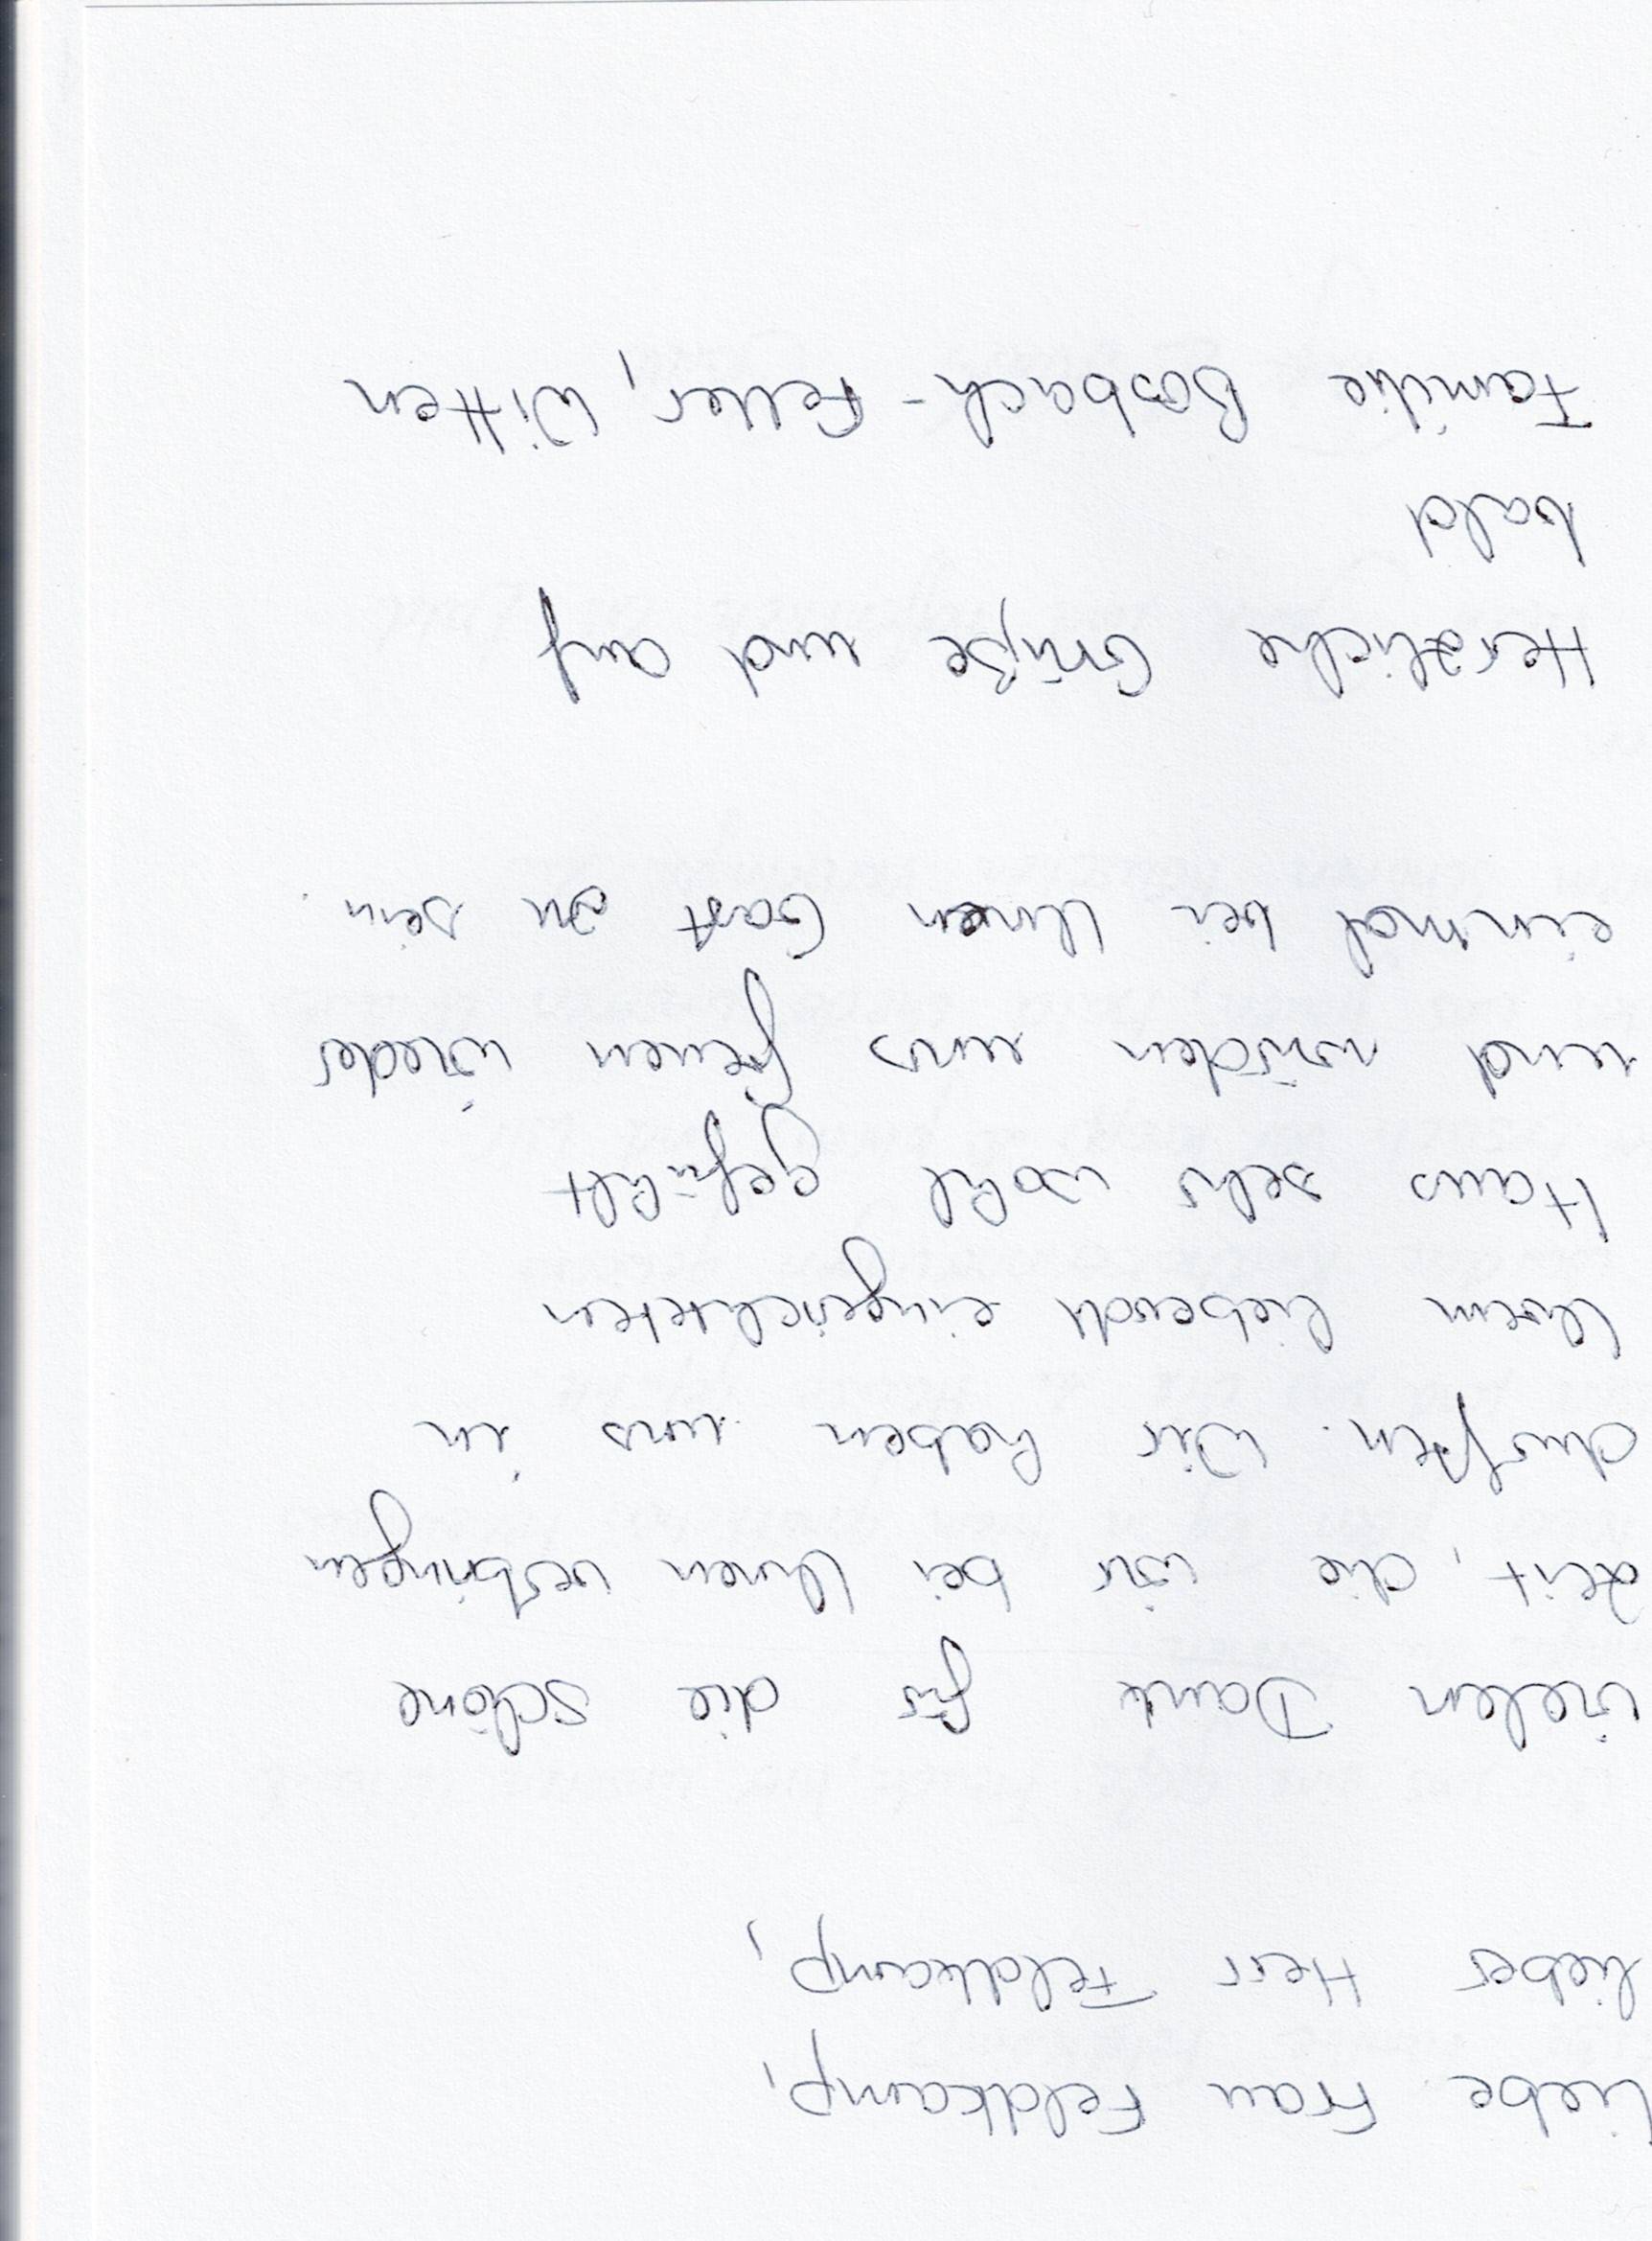 Liebe Frau Feldkamp,
lieber Herr Feldkamp,
vielen Dank für die schöne
Zeit, die wir bei Ihnen verbringen
durften. Wir haben uns in
Ihrem liebevoll eingerichteten
Haus sehr wohl gefühlt
und würden uns freuen wieder
einmal bei Ihnen Gast zu sein.
Herzliche Grüße und auf
bald
Familie Bosbach-Feller, Witten